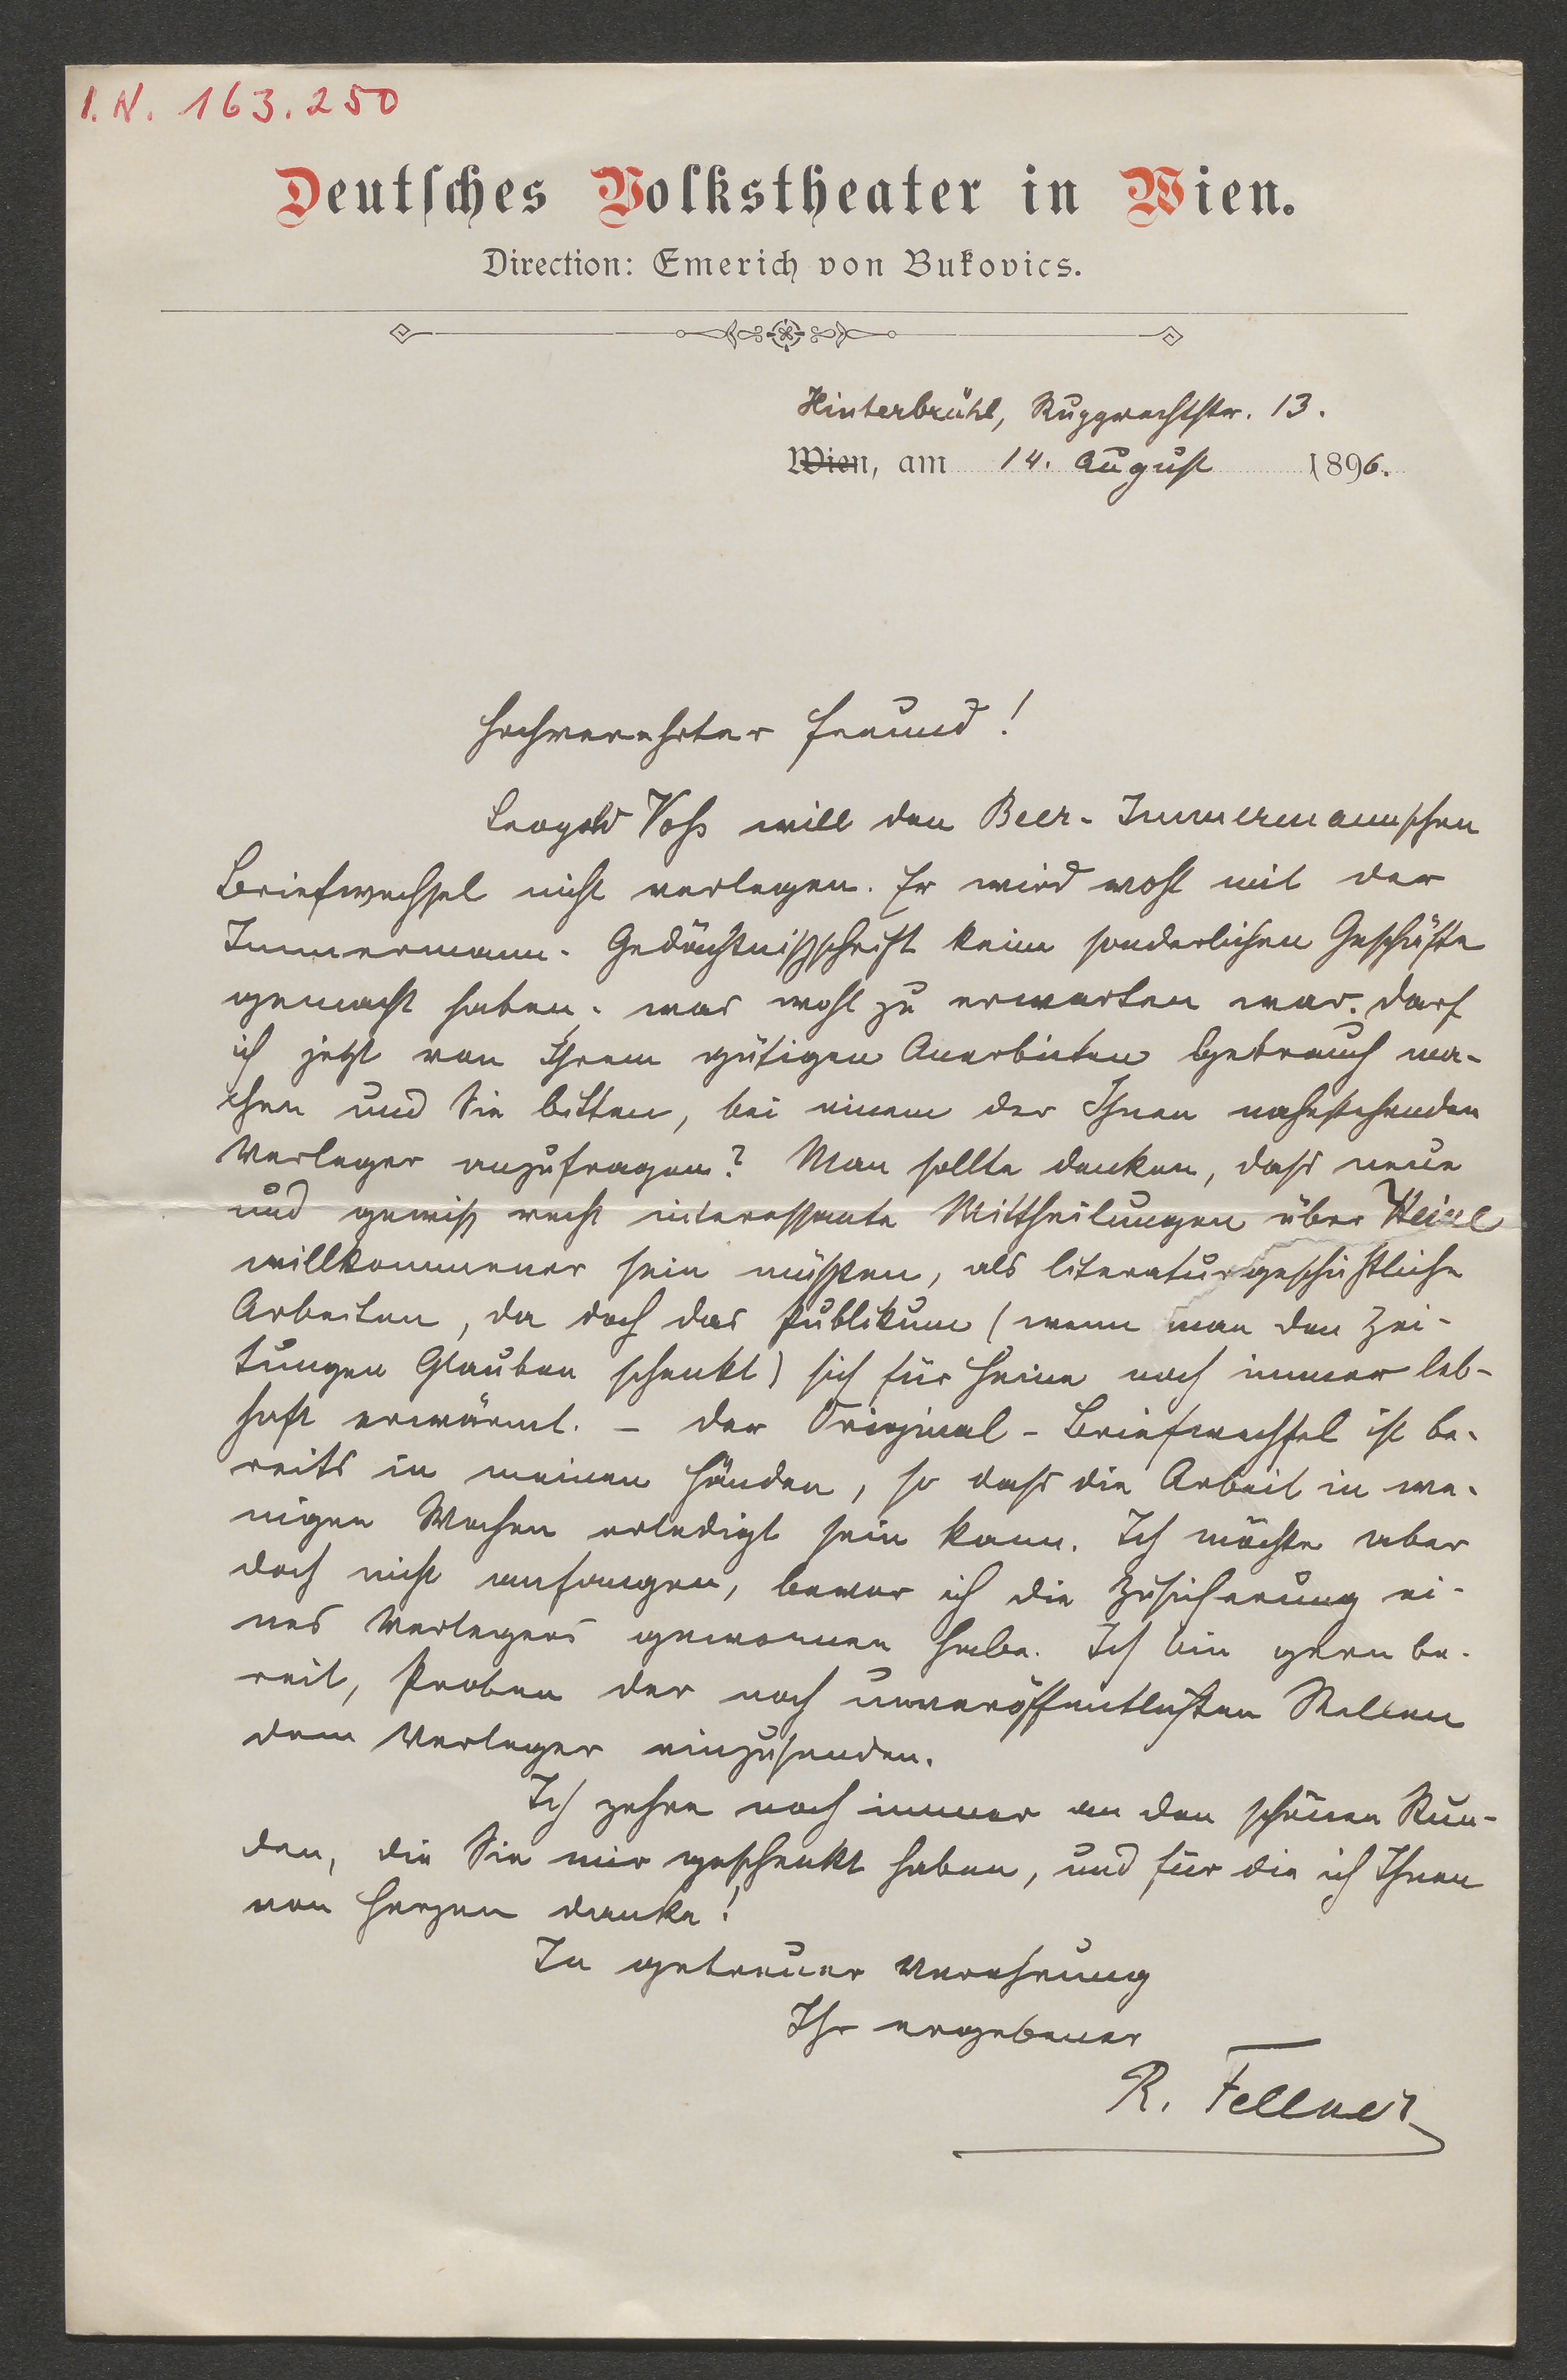 I. N. 163.250
Deutsches Volkstheater in Wien.
Direction: Emerich von Bukovics.
Hinterbrühl, Ruzgrechtstr. 13.
Wien, am 14. August 1896.
Hochverehrter Freund!
Leopold Voß will den Beer-Immermannschen
Briefwechsel nicht verlegen. Er wird wohl mit der
Immermann-Gedächtnißschrift keine sonderlichen Geschäfte
gemacht haben, was wohl zu erwarten war. Darf
ich jetzt von Ihrem gütigen Anerbieten Gebrauch ma-
chen und Sie bitten, bei einem der Ihnen nahestehenden
Verleger anzufragen? Man sollte denken, dass neue
und gewiß recht interessante Mittheilungen über Heine
willkommener sein müßten, als literaturgeschichtliche
Arbeiten, da doch das Publikum (wenn man den Zei-
tungen Glauben schenkt) sich für Heine noch immer leb-
haft erwärmt. – Der Original-Briefwechsel ist be-
reits in meinen Händen, so dass die Arbeit in we-
nigen Wochen erledigt sein kann. Ich möchte aber
doch nicht anfangen, bevor ich die Zusicherung ei-
nes Verlegers gewonnen habe. Ich bin gern be-
reit, Proben der noch unveröffentlichten Stellen
dem Verleger einzusenden.
Ich zehre noch immer an den schönen Stun-
den, die Sie mir geschenkt haben, und für die ich Ihnen
von Herzen danke!
In getreuer Verehrung
Ihr ergebener
R. Fellner